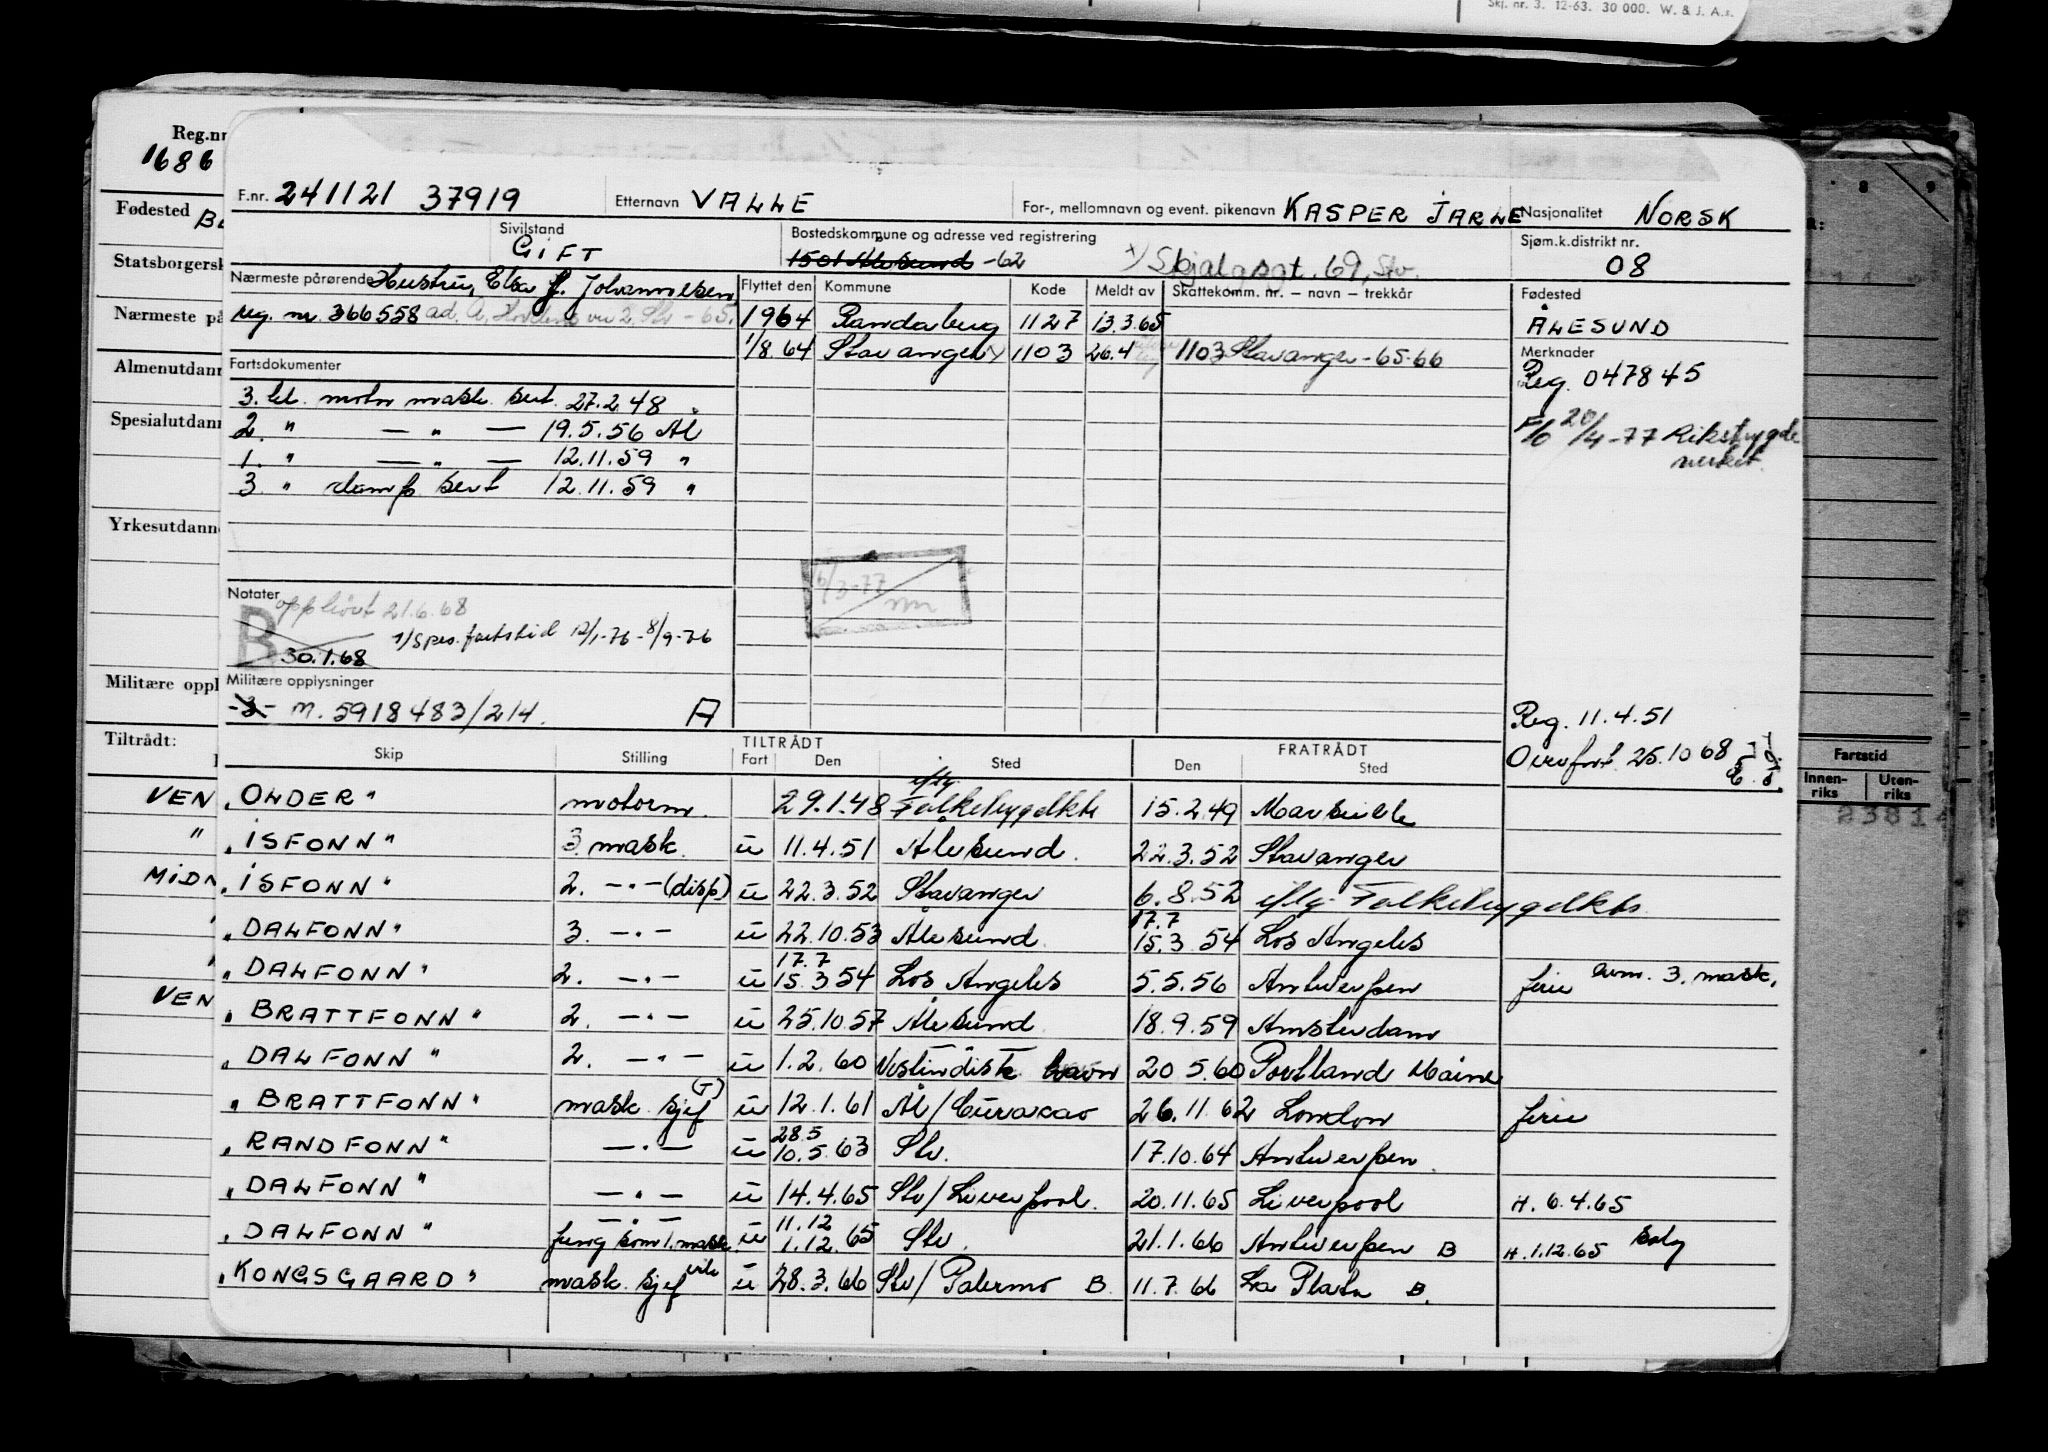 Skj. nr. 3. 12-63. 30 000. W. & J. A.s.
Reg.nr
1686
Fødested
Statsborgersk
Nærmeste på
Almenutdann
Spesialutdann
Yrkesutdann
Militære oppl
Tiltrådt:
VEN
"
MIDN
VEN
8 9
Fartstid
Innen-riks Uten-riks
F.nr. 241121 37919 Etternavn VALLE For-, mellomnavn og event. pikenavn KASPER JARLE Nasjonalitet NORSK
Sivilstand GIFT Bostedskommune og adresse ved registrering 1501 Ålesund -62 x) Skjalgsgt. 69, Stv. Sjøm.k.distrikt nr. 08
Nærmeste pårørende Hustru, Elsa f. Johannessen, Flyttet den Kommune Kode Meldt av Skattekomm. nr. – navn – trekkår Fødested
reg. nr. 366558 ad. 1964 Randaberg 1127 13.3.65 ÅLESUND
1/8.64 Stavanger x) 1103 26.4 1103 Stavanger -65-66 Merknader
Fartsdokumenter Reg. 047845
3. kl. motor mask. sert. 27.2.48 "
2. " — " — 19.5.56 Ål F/b 20/4-77 Rikstrygdeverket.
1. " — " — 12.11.59 "
3 " damp sert 12.11.59 "
6/3-77
Notater opphørt 21.6.68
B 30.1.68 1) Spes. fartstid 12/1-76 - 8/9-76
Militære opplysninger
-3- m. 5918483/214. A Reg. 11.4.51
Overført 25.10 68
TILTRÅDT FRATRÅDT
Skip Stilling Fart Den Sted Den Sted
"OLDER" motorm. 29.1.48 iflg. Folketrygdktr 15.2.49 Marseille
"ISFONN" 3. mask. u 11.4.51 Ålesund. 22.3.52 Stavanger
"ISFONN" 2. — " — (disp) u 22.3.52 Stavanger 6.8.52 iflg. Folketrygdktr.
"DALFONN" 3. — " — u 22.10.53 Ålesund. 17.7 15.3.54 Los Angeles
"DALFONN" 2. — " — u 17.7 15.3 54 Los Angeles 5.5.56 Antwerpen ferie anm. 3. mask.
"BRATTFONN" 2. — " — u 25.10.57 Ålesund. 18.9.59 Amsterdam
"DALFONN" 2. — " — u 1.2.60 Vestindisk havn 20 5.60 Portland Maine
"BRATTFONN" mask. sjef (T) u 12.1.61 Ål/Curacao 26.11.62 London ferie
"RANDFONN" — " — u 28.5 10.5.63 Stv. 17.10.64 Antwerpen.
"DALFONN" — " — u 14.4.65 Stv/Liverpool. 20.11.65 Liverpool H. 6.4.65
"DALFONN" — " — fung som 1. mask. u 11.12 1.12.65 Stv. 21.1.66 Antwerpen B H. 1.12.65 Solg
"KONGSGAARD" mask. sjef vik u 28.3.66 Stv/Palermo B. 11.7.66 La Plata B.